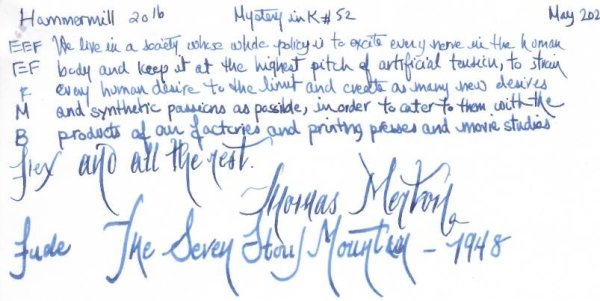 Hammermill 20 lb Mystery in K # 52 May 202
EEF We live in a society whose whole policy is to excite every nerve in the human
EF body and keep it at the highest pitch of artificial tension, to strain
F every human desire to the limit and create as many new desires
M and synthetic passions as possible, in order to cater to them with the
B products of our factories and printing presses and movie studios
flex and all the rest.
Thomas Merton
fude The Seven Story Mountain - 1948